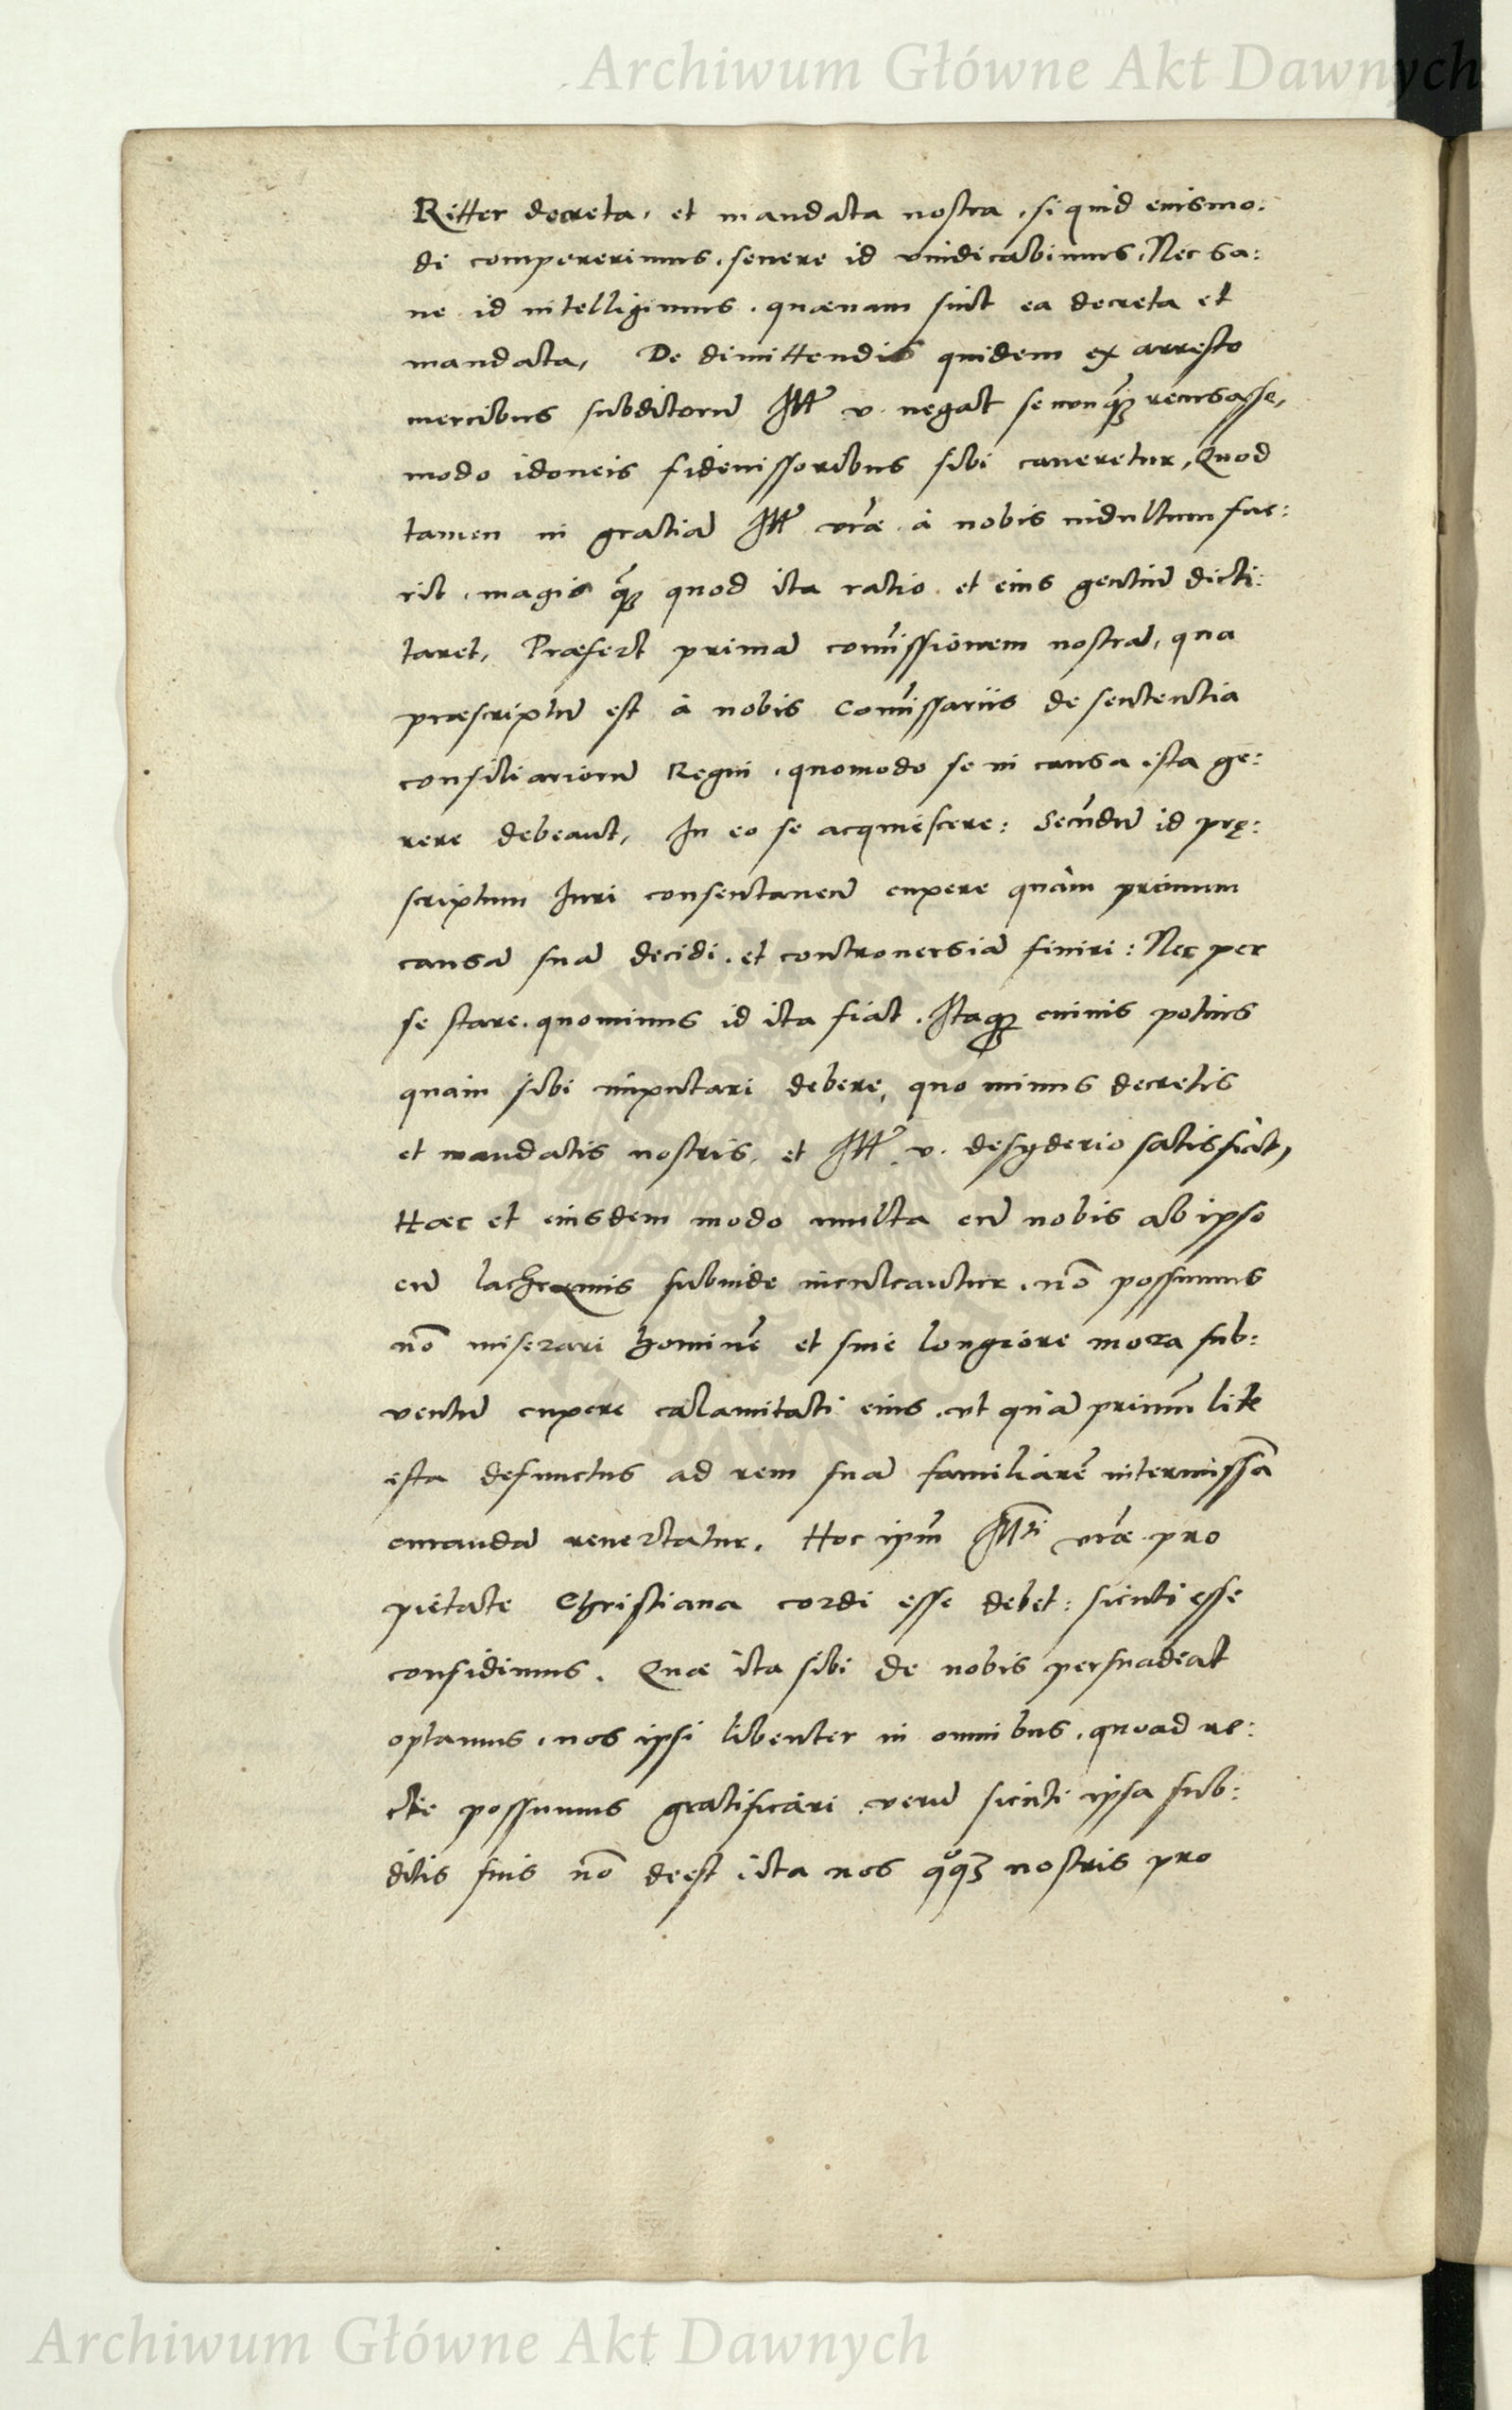 Archiwum Główne Akt Dawnych
Ritter decreta, et mandata nostra, si quid eiusmo:
di compererimus, severe id vindicabimus, Nec sa:
ne id intelligimus, quænam sint ea decreta et
mandata, De dimittendis quidem ex arresto
mercibus subditorũ Ill v. negat se nunq̃ꝫ recusasse,
modo idoneis fideiussoribus sibi caveretur, Quod
tamen in gratiã Ill vr̃æ à nobis indultum fue:
rit, magis q̃ꝫ quod ita ratio et eius gentiũ dicti:
taret, Præfert primã com̃issionem nostrã, qua
præscriptũ est à nobis Com̃issariis de sententia
consiliariorũ Regni, quomodo se in causa ista ge:
rere debeant, In eo se acquiescere: Secũdũ id prę:
scriptum Iuri consentaneũ cupere quàm primum
causã suã decidi, et controversiã finiri: Nec per
se stare, quominus id ita fiat, Itaqꝫ cuivis potius
quàm sibi imputari debere, quo minus decretis
et mandatis nostris, et Ill v. desyderio satisfiat,
Hæc et eiusdem modo multa cũ nobis ab ipso
cũ lachrymis subinde inculcantur, nõ possumus
nõ miserari hominẽ et sine longiore mora sub:
ventũ cupere calamitati eius, ut quã primũ lite
ista defunctus ad rem suã familiarẽ intermissã
curandã revertatur. Hoc ipm̃ Illti vr̃æ pro
pietate Christiana cordi esse debet: sicuti esse
confidimus. Quæ ita sibi de nobis persuadeat
optamus, nos ipsi libenter in omnibus, quoad re:
cte possumus gratificari, verũ sicuti ipsa sub:
ditis suis nõ deest ita nos qͦqꝫ nostris pro
Archiwum Główne Akt Dawnych